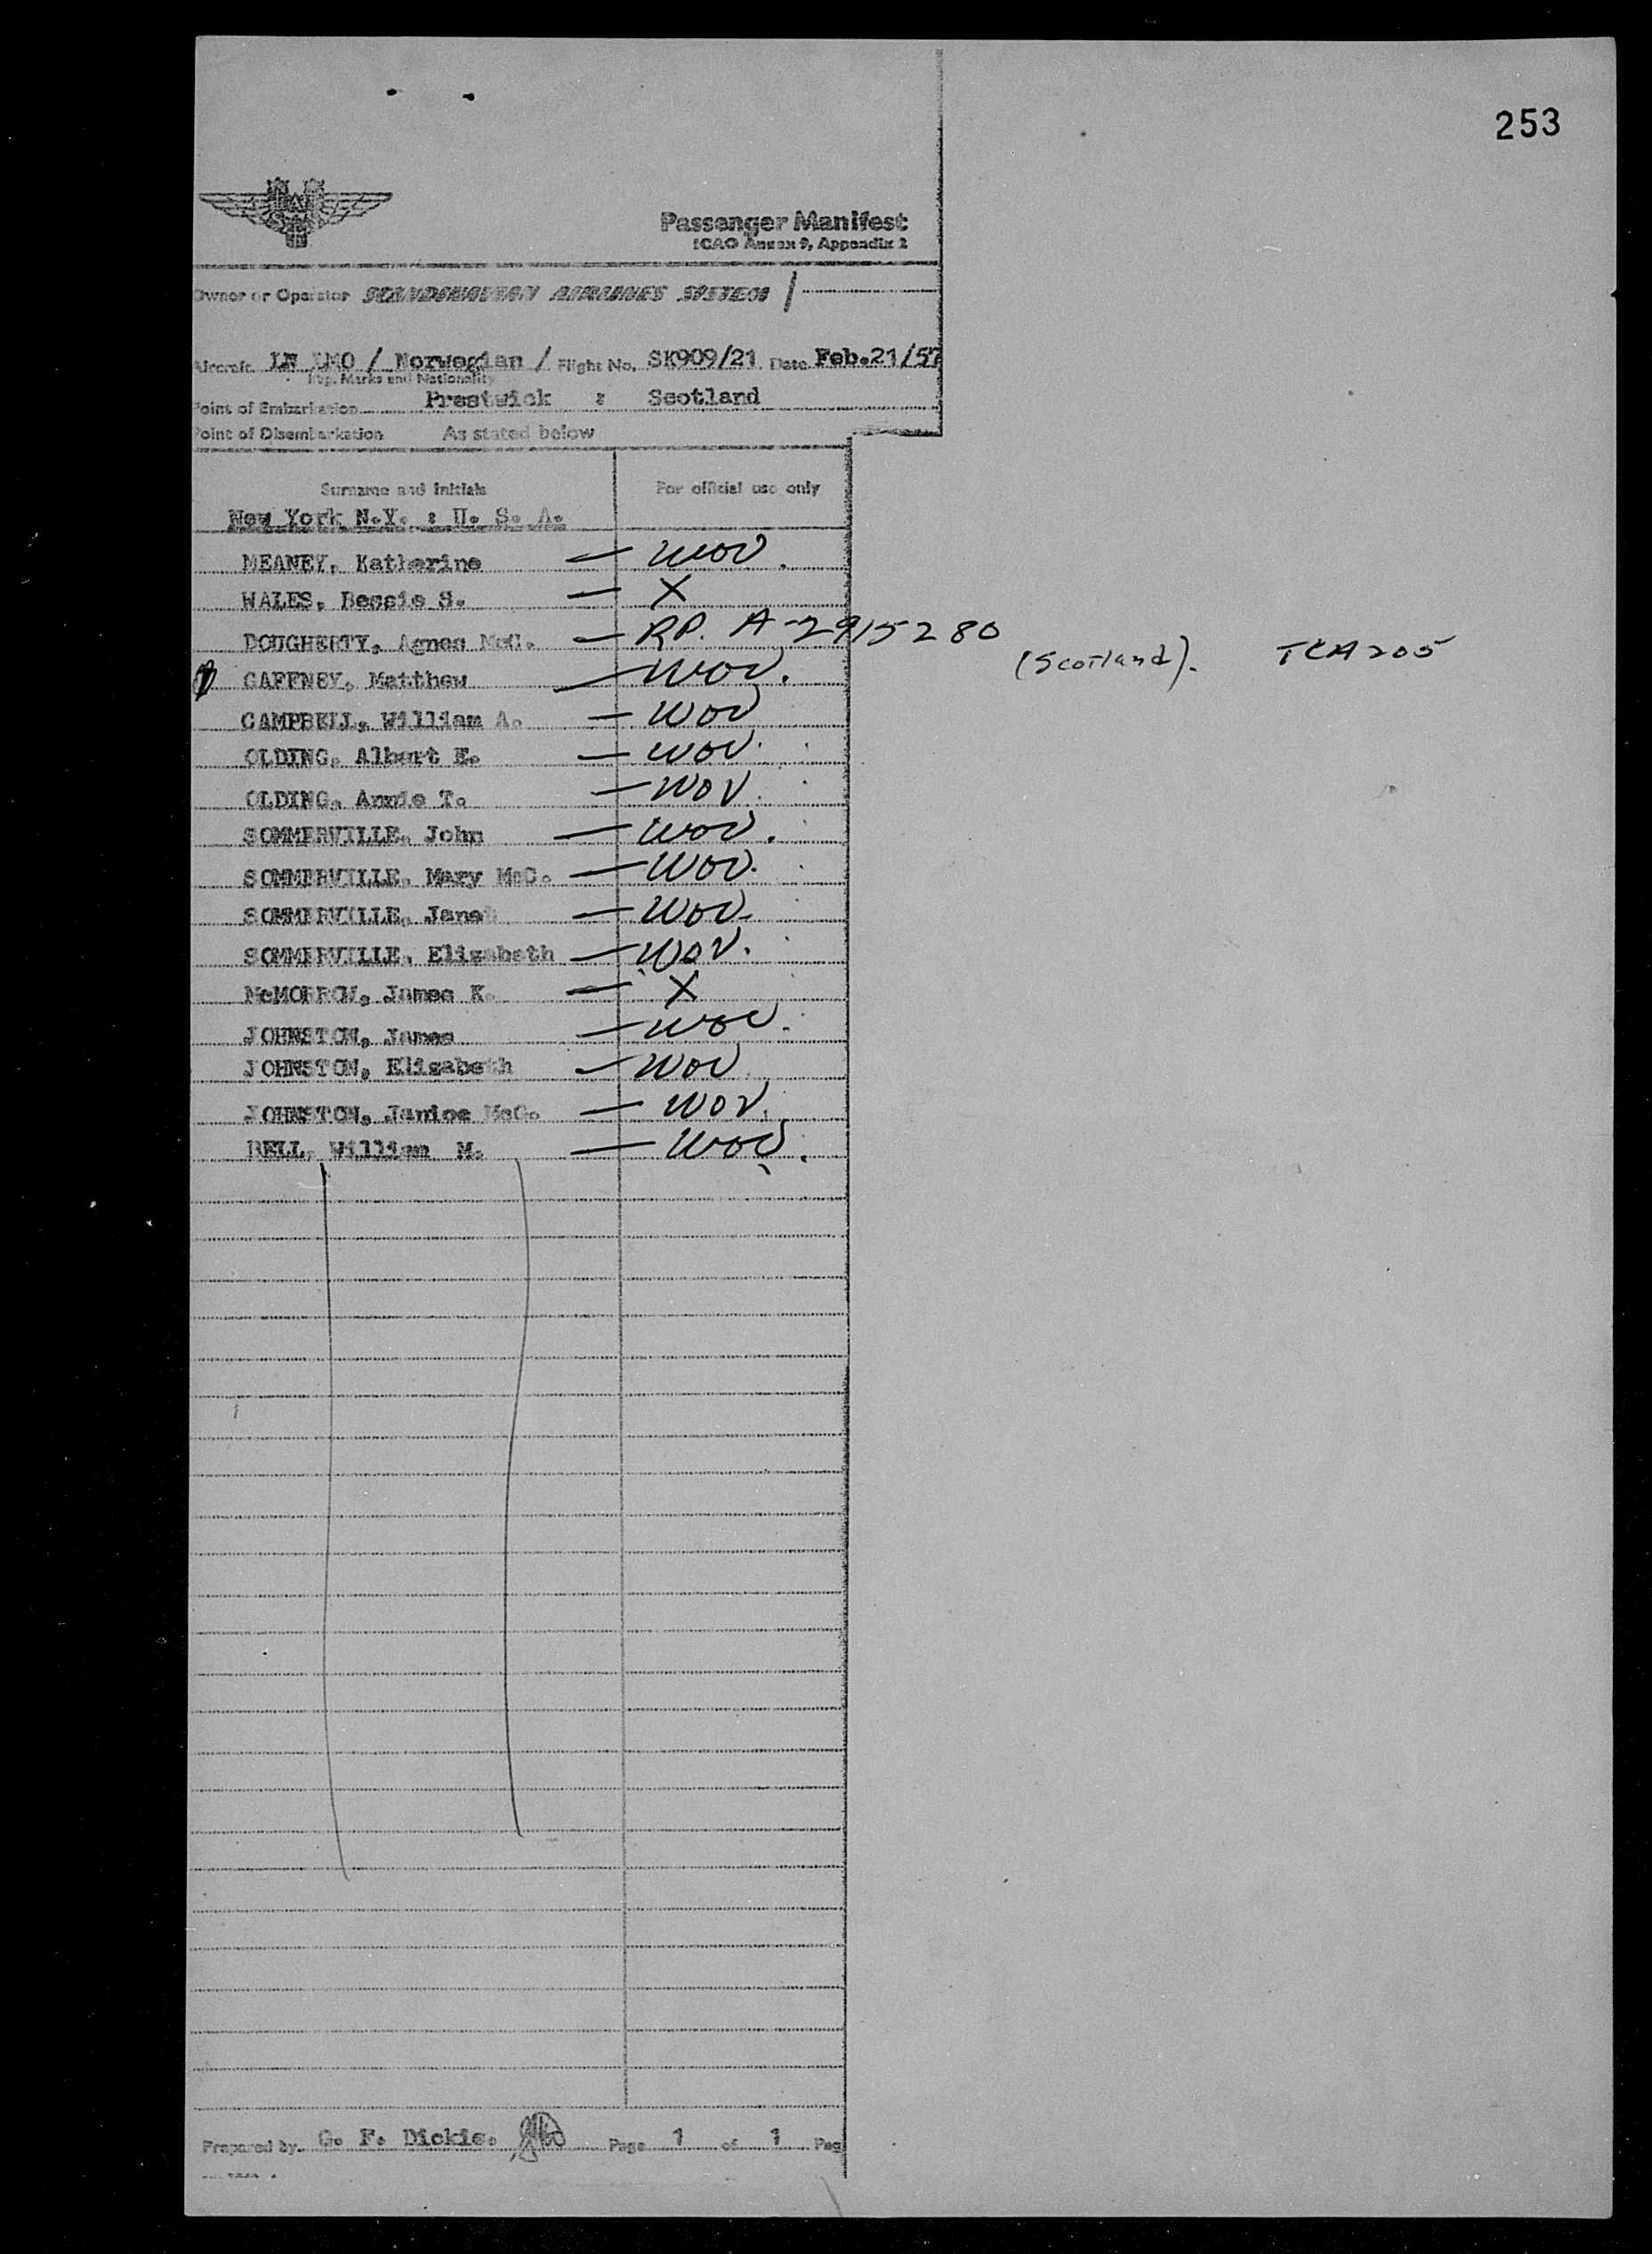 253
Passenger Manifest
ICAO Annex 9, Appendix 2
Owner or Operator SCANDINAVIAN AIRLINES SYSTEM
Aircraft LN LMO / Norwegian / Flight No. SK909/21 Date Feb.21/57
Reg. Marks and Nationality
Point of Embarkation Prestwick : Scotland
Point of Disembarkation As stated below
Surname and Initials For official use only
New York N.Y. : U. S. A.
MEANEY, Katherine — WOV.
WALES, Bessie S. — X
DOUGHERTY, Agnes McC. — RP. A-2915280 (Scotland). TCA 205
GAFFNEY, Matthew — WOV.
CAMPBELL, William A. — WOV
OLDING, Albert E. — WOV.
OLDING, Annie T. — WOV.
SOMMERVILLE, John — WOV.
SOMMERVILLE, Mary McC. — WOV.
SOMMERVILLE, Janet — WOV.
SOMMERVILLE, Elizabeth — WOV.
McMORRON, James K. — X
JOHNSTON, James — WOV.
JOHNSTON, Elizabeth — WOV
JOHNSTON, Janice McC. — WOV.
BELL, William M. — WOV.
Prepared by G. F. Dickie. Page 1 of 1 Pag